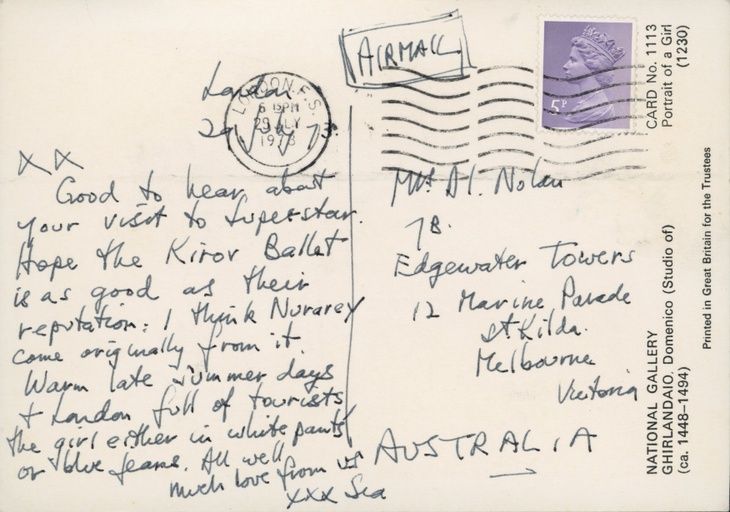 AIRMAIL
LONDON F.S.
6 15PM
29 JLY
1973
5P
London
29 July 73
XX
Good to hear about
your visit to Superstar.
Hope the Kirov Ballet
is as good as their
reputation: I think Nurarey
come originally from it.
Warm late summer days
+ London full of tourists
the girl either in white pants
or blue jeans. All well
much love from us
xxx
Mrs Nolan
7B.
Edgewater Towers
12 Marine Parade
St Kilda.
Melbourne
Victoria
AUSTRALIA
CARD No. 1113
Portrait of a Girl
(1230)
NATIONAL GALLERY
GHIRLANDAIO, Domenico (Studio of)
(ca. 1448–1494)
Printed in Great Britain for the Trustees